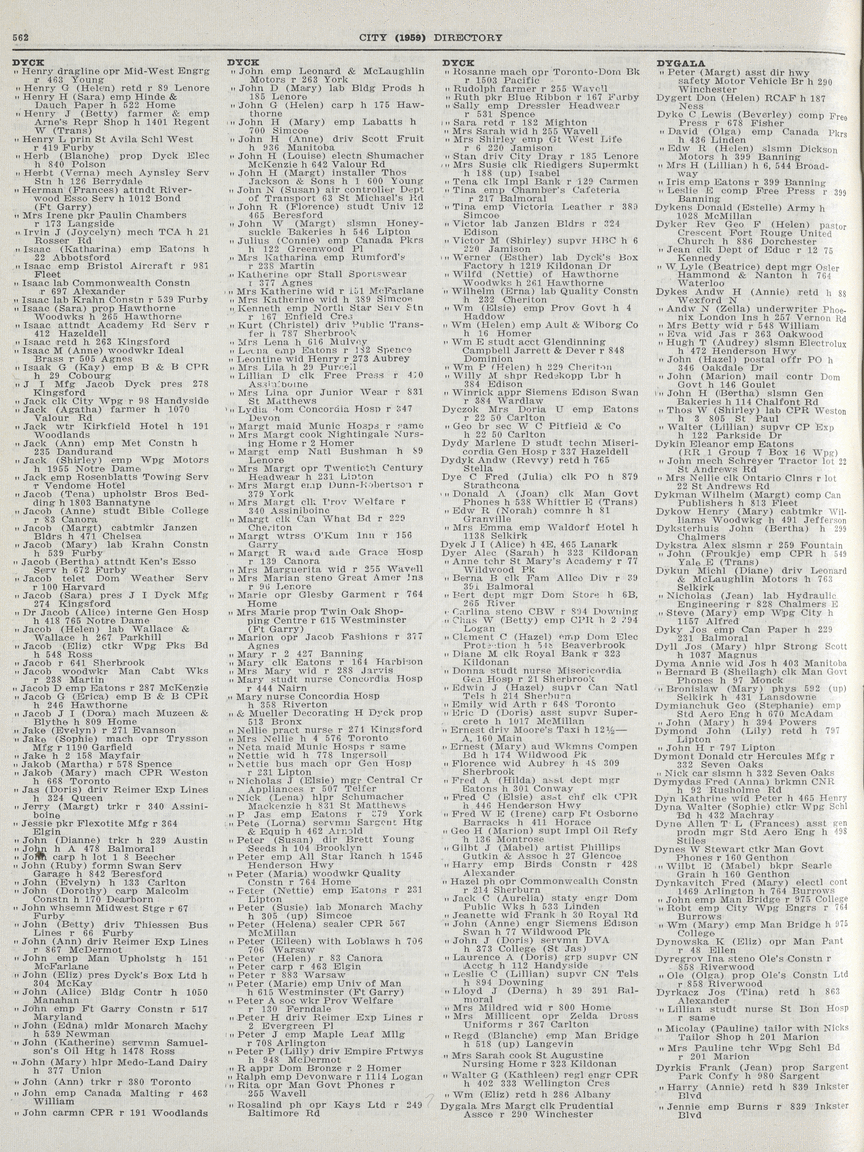 562
CITY (1959) DIRECTORY
DYCK
" Henry dragline opr Mid-West Engrg
r 463 Young
" Henry G (Helen) retd r 89 Lenore
" Henry H (Sara) emp Hinde &
Dauch Paper h 522 Home
" Henry J (Betty) farmer & emp
Arne's Repr Shop h 1401 Regent
W (Trans)
" Henry L prin St Avila Schl West
r 419 Furby
" Herb (Blanche) prop Dyck Elec
h 840 Polson
" Herb (Verna) mech Aynsley Serv
Stn h 126 Berrydale
" Herman (Frances) attndt River-
wood Esso Serv h 1012 Bond
(Ft Garry)
" Mrs Irene pkr Paulin Chambers
r 173 Langside
" Irvin J (Joycelyn) mech TCA h 21
Rosser Rd
" Isaac (Katharina) emp Eatons h
22 Abbotsford
" Isaac emp Bristol Aircraft r 981
Fleet
" Isaac lab Commonwealth Constn
r 697 Alexander
" Isaac lab Krahn Constn r 539 Furby
" Isaac (Sara) prop Hawthorne
Woodwks h 265 Hawthorne
" Isaac attndt Academy Rd Serv r
412 Hazeldell
" Isaac retd h 263 Kingsford
" Isaac M (Anne) woodwkr Ideal
Brass r 505 Agnes
" Isaak G (Kay) emp B & B CPR
h 29 Cobourg
" J I Mfg Jacob Dyck pres 278
Kingsford
" Jack clk City Wpg r 98 Handyside
" Jack (Agatha) farmer h 1070
Valour Rd
" Jack wtr Kirkfield Hotel h 191
Woodlands
" Jack (Ann) emp Met Constn h
235 Dandurand
" Jack (Shirley) emp Wpg Motors
h 1955 Notre Dame
" Jack emp Rosenblatts Towing Serv
r Vendome Hotel
" Jacob (Tena) upholstr Bros Bed-
ding h 1803 Bannatyne
" Jacob (Anne) studt Bible College
r 83 Canora
" Jacob (Margt) cabtmkr Janzen
Bldrs h 471 Chelsea
" Jacob (Mary) lab Krahn Constn
h 539 Furby
" Jacob (Bertha) attndt Ken's Esso
Serv h 672 Furby
" Jacob telet Dom Weather Serv
r 100 Harvard
" Jacob (Sara) pres J I Dyck Mfg
274 Kingsford
" Dr Jacob (Alice) interne Gen Hosp
h 418 765 Notre Dame
" Jacob (Helen) lab Wallace &
Wallace h 267 Parkhill
" Jacob (Eliz) ctkr Wpg Pks Bd
h 548 Ross
" Jacob r 641 Sherbrook
" Jacob woodwkr Man Cabt Wks
r 238 Martin
" Jacob D emp Eatons r 287 McKenzie
" Jacob G (Erica) emp B & B CPR
h 246 Hawthorne
" Jacob J I (Dora) mach Muzeen &
Blythe h 809 Home
" Jake (Evelyn) r 271 Evanson
" Jake (Sophie) mach opr Trysson
Mfg r 1190 Garfield
" Jake h 2 158 Mayfair
" Jakob (Martha) r 578 Spence
" Jakob (Mary) mach CPR Weston
h 668 Toronto
" Jas (Doris) driv Reimer Exp Lines
h 324 Queen
" Jerry (Margt) trkr r 340 Assini-
boine
" Jessie pkr Flexotite Mfg r 364
Elgin
" John (Dianne) trkr h 239 Austin
" John h A 478 Balmoral
" John carp h lot 1 8 Beecher
" John (Ruby) formn Swan Serv
Garage h 842 Beresford
" John (Evelyn) h 133 Carlton
" John (Dorothy) carp Malcolm
Constn h 170 Dearborn
" John whsemn Midwest Stge r 67
Furby
" John (Betty) driv Thiessen Bus
Lines r 66 Furby
" John (Ann) driv Reimer Exp Lines
r 867 McDermot
" John emp Man Upholstg h 151
McFarlane
" John (Eliz) pres Dyck's Box Ltd h
304 McKay
" John (Alice) Bldg Contr h 1050
Manahan
" John emp Ft Garry Constn r 517
Maryland
" John (Edna) mldr Monarch Machy
h 539 Newman
" John (Katherine) servmn Samuel-
son's Oil Htg h 1478 Ross
" John (Mary) hlpr Medo-Land Dairy
h 377 Union
" John (Ann) trkr r 380 Toronto
" John emp Canada Malting r 463
William
" John carmn CPR r 191 Woodlands
DYCK
" John emp Leonard & McLaughlin
Motors r 263 York
" John D (Mary) lab Bldg Prods h
185 Lenore
" John G (Helen) carp h 175 Haw-
thorne
" John H (Mary) emp Labatts h
700 Simcoe
" John H (Anne) driv Scott Fruit
h 936 Manitoba
" John H (Louise) electn Shumacher
McKenzie h 642 Valour Rd
" John H (Margt) installer Thos
Jackson & Sons h 1 600 Young
" John N (Susan) air controller Dept
of Transport 63 St Michael's Rd
" John R (Florence) studt Univ 12
465 Beresford
" John W (Margt) slsmn Honey-
suckle Bakeries h 546 Lipton
" Julius (Connie) emp Canada Pkrs
h 122 Greenwood Pl
" Mrs Katharina emp Rumford's
r 238 Martin
" Katherine opr Stall Sportswear
r 377 Agnes
" Mrs Katherine wid r 151 McFarlane
" Mrs Katherine wid h 389 Simcoe
" Kenneth emp North Star Serv Stn
r 167 Enfield Cres
" Kurt (Christel) driv Public Trans-
fer h 787 Sherbrook
" Mrs Lena h 616 Mulvey
" Leona emp Eatons r 182 Spence
" Leontine wid Henry r 273 Aubrey
" Mrs Lila h 29 Purcell
" Lillian D clk Free Press r 410
Assiniboine
" Mrs Lina opr Junior Wear r 831
St Matthews
" Lydia dom Concordia Hosp r 347
Devon
" Margt maid Munic Hosps r same
" Mrs Margt cook Nightingale Nurs-
ing Home r 2 Homer
" Margt emp Natl Bushman h 89
Lenore
" Mrs Margt opr Twentieth Century
Headwear h 231 Lipton
" Mrs Margt emp Dunn-Robertson r
379 York
" Mrs Margt clk Prov Welfare r
340 Assiniboine
" Margt clk Can What Bd r 229
Cheriton
" Margt wtrss O'Kum Inn r 156
Garry
" Margt R ward aide Grace Hosp
r 139 Canora
" Mrs Marguerita wid r 255 Wavell
" Mrs Marian steno Great Amer Ins
r 96 Lenore
" Marie opr Glesby Garment r 764
Home
" Mrs Marie prop Twin Oak Shop-
ping Centre r 615 Westminster
(Ft Garry)
" Marion opr Jacob Fashions r 377
Agnes
" Mary r 2 427 Banning
" Mary clk Eatons r 164 Harbison
" Mrs Mary wid r 288 Jarvis
" Mary studt nurse Concordia Hosp
r 444 Nairn
" Mary nurse Concordia Hosp
h 358 Riverton
" & Mueller Decorating H Dyck prop
513 Broadway
" Nellie pract nurse r 271 Kingsford
" Mrs Nellie h 4 576 Toronto
" Neta maid Munic Hosps r same
" Nettie wid h 778 Ingersoll
" Nettie bus mach opr Gen Hosp
r 231 Lipton
" Nicholas J (Elsie) mgr Central Cr
Appliances r 507 Telfer
" Nick (Lena) hlpr Schumacher
Mackenzie h 831 St Matthews
" P Jas emp Eatons r 379 York
" Pete (Lorna) servmn Sargent Htg
& Equip h 462 Arnold
" Peter (Susan) dir Brett Young
Seeds h 104 Brooklyn
" Peter emp All Star Ranch h 1545
Henderson Hwy
" Peter (Maria) woodwkr Quality
Constn r 764 Home
" Peter (Helena) emp Eatons r 231
Lipton
" Peter (Susie) lab Monarch Machy
h 305 (up) Simcoe
" Peter (Helena) sealer CPR 567
McMillan
" Peter (Eileen) with Loblaws h 706
706 Warsaw
" Peter (Helen) r 83 Canora
" Peter carp r 463 Elgin
" Peter r 883 Warsaw
" Peter (Marie) emp Univ of Man
h 615 Westminster (Ft Garry)
" Peter A soc wkr Prov Welfare
r 130 Ferndale
" Peter H driv Reimer Exp Lines r
2 Evergreen Pl
" Peter J emp Maple Leaf Mllg
r 708 Arlington
" Peter P (Lilly) driv Empire Frtwys
h 948 McDermot
" R appr Dom Bronze r 2 Homer
" Ralph emp Devonware r 1114 Logan
" Rita opr Man Govt Phones r
255 Wavell
" Rosalind ph opr Kays Ltd r 249
Baltimore Rd
DYCK
" Rosanne mach opr Toronto-Dom Bk
r 1503 Pacific
" Rudolph farmer r 255 Wavell
" Ruth pkr Blue Ribbon r 167 Furby
" Sally emp Dressler Headwear
r 531 Spence
" Sara retd r 182 Mighton
" Mrs Sarah wid h 255 Wavell
" Mrs Shirley emp Gt West Life
r 6 220 Jamison
" Stan driv City Dray r 185 Lenore
" Mrs Susie clk Riedigers Supermkt
h 188 (up) Isabel
" Tena clk Impl Bank r 129 Carmen
" Tina emp Chamber's Cafeteria
r 217 Balmoral
" Tina emp Victoria Leather r 389
Simcoe
" Victor lab Janzen Bldrs r 324
Edison
" Victor M (Shirley) supvr HBC h 6
220 Jamison
" Werner (Esther) lab Dyck's Box
Factory h 1219 Kildonan Dr
" Wilfd (Nettie) of Hawthorne
Woodwks h 261 Hawthorne
" Wilhelm (Erna) lab Quality Constn
h 232 Cheriton
" Wm (Elsie) emp Prov Govt h 4
Haddow
" Wm (Helen) emp Ault & Wiborg Co
h 16 Homer
" Wm E studt acct Glendinning
Campbell Jarrett & Dever r 848
Dominion
" Wm P (Helen) h 229 Cheriton
" Willy M shpr Redekopp Lbr h
384 Edison
" Winrick appr Siemens Edison Swan
r 384 Wardlaw
Dyczok Mrs Doria U emp Eatons
r 22 50 Carlton
" Geo br sec W C Pitfield & Co
h 22 50 Carlton
Dydy Marlene D studt techn Miseri-
cordia Gen Hosp r 337 Hazeldell
Dydyk Andw (Revvy) retd h 765
Stella
Dye C Fred (Julia) clk PO h 879
Strathcona
" Donald A (Joan) clk Man Govt
Phones h 538 Whittier E (Trans)
" Edw R (Norah) comnre h 81
Granville
" Mrs Emma emp Waldorf Hotel h
1138 Selkirk
Dyek J I (Alice) h 4E, 465 Lanark
Dyer Alec (Sarah) h 323 Kildonan
" Anne tchr St Mary's Academy r 77
Wildwood Pk
" Berna B clk Fam Alloc Div r 39
391 Balmoral
" Bert dept mgr Dom Store h 6B,
265 River
" Carlina steno CBW r 894 Downing
" Chas W (Betty) emp CPR h 2 294
Logan
" Clement C (Hazel) emp Dom Elec
Protection h 548 Beaverbrook
" Diane M clk Royal Bank r 323
Kildonan
" Donna studt nurse Misicordia
Gen Hosp r 21 Sherbrook
" Edwin J (Hazel) supvr Can Natl
Tels h 214 Sherburn
" Emily wid Arth r 648 Toronto
" Eric D (Doris) asst supvr Super-
crete h 1017 McMillan
" Ernest driv Moore's Taxi h 12½—
A, 160 Main
" Ernest (Mary) aud Wkmns Compen
Bd h 174 Wildwood Pk
" Florence wid Aubrey h 48 309
Sherbrook
" Fred A (Hilda) asst dept mgr
Eatons h 301 Conway
" Fred C (Elsie) asst chf clk CPR
h 446 Henderson Hwy
" Fred W E (Irene) carp Ft Osborne
Barracks h 411 Horace
" Geo H (Marion) supt Impl Oil Refy
h 136 Montrose
" Gilbt J (Mabel) artist Phillips
Gutkin & Assoc h 27 Glencoe
" Harry emp Birds Constn r 428
Alexander
" Hazel ph opr Commonwealth Constn
r 214 Sherburn
" Jack C (Aurelia) staty engr Dom
Public Wks h 533 Linden
" Jeanette wid Frank h 30 Royal Rd
" John (Anne) engr Siemens Edison
Swan h 77 Wildwood Pk
" John J (Doris) servmn DVA
h 373 College (St Jas)
" Laurence A (Doris) grp supvr CN
Acctg h 112 Handyside
" Leslie C (Lillian) supvr CN Tels
h 894 Downing
" Lloyd J (Derna) h 39 391 Bal-
moral
" Mrs Mildred wid r 800 Home
" Mrs Millicent opr Zelda Dress
Uniforms r 367 Carlton
" Regd (Blanche) emp Man Bridge
h 518 (up) Langevin
" Mrs Sarah cook St Augustine
Nursing Home r 323 Kildonan
" Walter G (Kathleen) regl engr CPR
h 402 333 Wellington Cres
" Wm (Eliz) retd h 286 Albany
Dygala Mrs Margt clk Prudential
Assce r 290 Winchester
DYGALA
" Peter (Margt) asst dir hwy
safety Motor Vehicle Br h 290
Winchester
Dygert Don (Helen) RCAF h 187
Ness
Dyke C Lewis (Beverley) comp Free
Press r 678 Fisher
" David (Olga) emp Canada Pkrs
h 436 Linden
" Edw R (Helen) slsmn Dickson
Motors h 399 Banning
" Mrs H (Lillian) h 6, 544 Broad-
way
" Iris emp Eatons r 399 Banning
" Leslie E comp Free Press r 399
Banning
Dykens Donald (Estelle) Army h
1028 McMillan
Dyker Rev Geo F (Helen) pastor
Crescent Fort Rouge United
Church h 886 Dorchester
" Jean clk Dept of Educ r 12 75
Kennedy
" W Lyle (Beatrice) dept mgr Osler
Hammond & Nanton h 764
Waterloo
Dykes Andw H (Annie) retd h 88
Wexford N
" Andw N (Zella) underwriter Phoe-
nix London Ins h 257 Vernon Rd
" Mrs Betty wid r 548 William
" Eva wid Jas r 363 Oakwood
" Hugh T (Audrey) slsmn Electrolux
h 472 Henderson Hwy
" John (Hazel) postal offr PO h
346 Oakdale Dr
" John (Marion) mail contr Dom
Govt h 146 Goulet
" John H (Bertha) slsmn Gen
Bakeries h 114 Chalfont Rd
" Thos W (Shirley) lab CPR Weston
h 3 805 St Paul
" Walter (Lillian) supvr CP Exp
h 122 Parkside Dr
Dykin Elleanor emp Eatons
(RR 1 Group 7 Box 16 Wpg)
" John mech Schreyer Tractor lot 22
St Andrews Rd
" Mrs Nellie clk Ontario Clnrs r lot
22 St Andrews Rd
Dykman Wilhelm (Margt) comp Can
Publishers h 813 Fleet
Dykow Henry (Mary) cabtmkr Wil-
liams Woodwkg h 491 Jefferson
Dyksterhuis John (Bertha) h 299
Chalmers
Dykstra Alex slsmn r 259 Fountain
" John (Froukje) emp CPR h 549
Yale E (Trans)
Dykun Michl (Diane) driv Leonard
& McLaughlin Motors h 763
Selkirk
" Nicholas (Jean) lab Hydraulic
Engineering r 828 Chalmers E
" Steve (Mary) emp Wpg City h
1157 Alfred
Dyky Jos emp Can Paper h 229
231 Balmoral
Dyll Jos (Mary) hlpr Strong Scott
h 1037 Magnus
Dyma Annie wid Jos h 403 Manitoba
" Bernard B (Sheilagh) clk Man Govt
Phones h 97 Monck
" Bronislaw (Mary) phys 592 (up)
Selkirk h 431 Lansdowne
Dymianchuk Geo (Stephanie) emp
Std Aero Eng h 670 McAdam
" John (Mary) h 394 Powers
Dymond John (Lily) retd h 797
Lipton
" John H r 797 Lipton
Dymont Donald ctr Hercules Mfg r
332 Seven Oaks
" Nick car slsmn h 332 Seven Oaks
Dymydas Fred (Anna) brkmn CNR
h 92 Rusholme Rd
Dyn Kathrine wid Peter h 465 Henry
Dyna Walter (Sophie) ctkr Wpg Schl
Bd h 432 Machray
Dyne Allen T L (Frances) asst gen
prodn mgr Std Aero Eng h 498
Stiles
Dynes W Stewart ctkr Man Govt
Phones r 160 Genthon
" Wilbt E (Mabel) bkpr Searle
Grain h 160 Genthon
Dynkavitch Fred (Mary) electl cont
1469 Arlington h 764 Burrows
" John emp Man Bridge r 975 College
" Robt emp City Wpg Engrs r 764
Burrows
" Wm (Mary) emp Man Bridge h 975
College
Dynowska K (Eliz) opr Man Pant
r 48 Ellen
Dyregrov Ina steno Ole's Constn r
858 Riverwood
" Ole (Olga) prop Ole's Constn Ltd
r 858 Riverwood
Dyrkacz Jos (Tina) retd h 863
Alexander
" Lillian studt nurse St Bon Hosp
r same
" Micolay (Pauline) tailor with Nicks
Tailor Shop h 201 Marion
" Mrs Pauline tchr Wpg Schl Bd
r 201 Marion
Dyrkis Frank (Jean) prop Sargent
Park Confy h 980 Sargent
" Harry (Annie) retd h 839 Inkster
Blvd
" Jennie emp Burns r 839 Inkster
Blvd